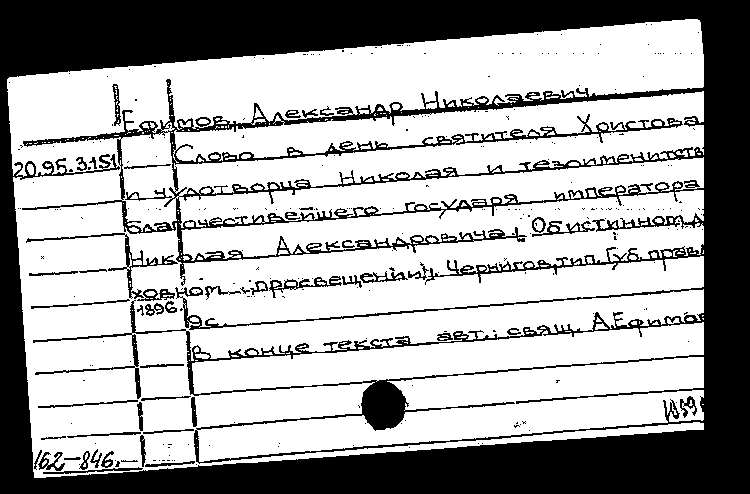 Ефимов, Александр Николаевич.
20.95.3.151 Слово в день святителя Христова
и чудотворца Николая и тезоименитств
благочестивейшего государя императора
Николая Александровича: Об истинном д
ховном просвещении]. Чернигов, тип. Губ. правл
1896. 9с.
В конце текста авт.: свящ. А.Ефимов
162-846.